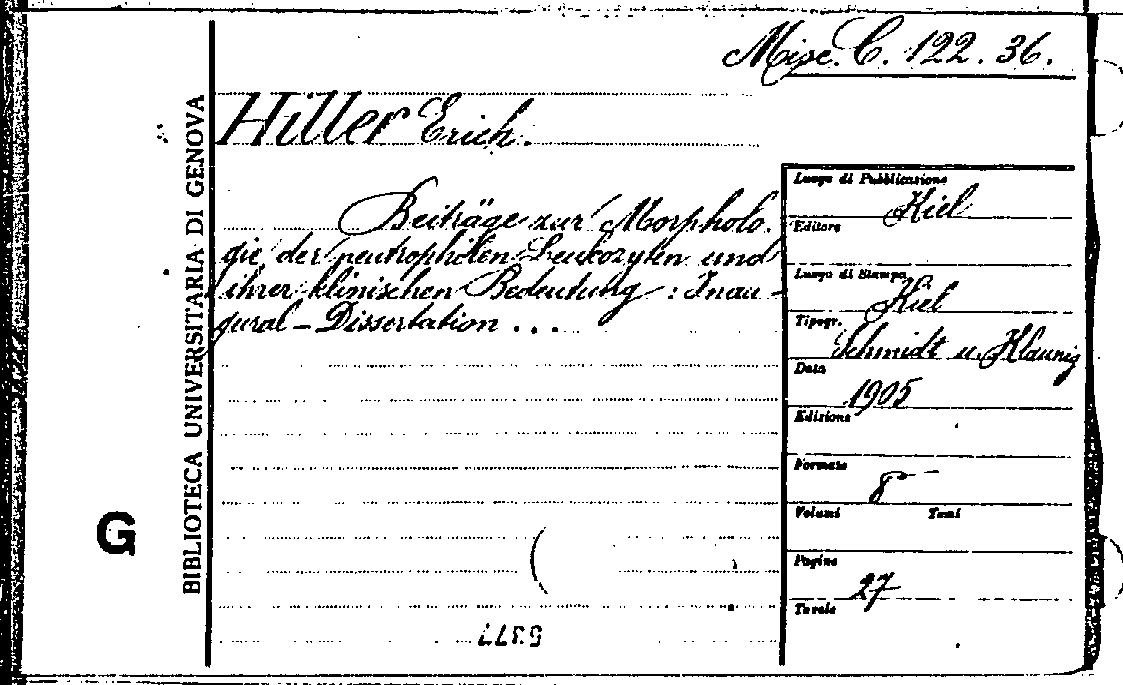 Misc. C. 122. 36.
Hiller Erich.
Beiträge zur Morpholo-
gie der neutrophilen Leukozyten und
ihrer klinischen Bedeutung : Inau-
gural-Dissertation ...
Luogo di Pubblicazione
Kiel
Editore
Luogo di Stampa
Kiel
Tipogr.
Schmidt u. Klaunig
Data
1905
Edizione
Formato
8°
Volumi Tomi
Pagine
27
Tavole
BIBLIOTECA UNIVERSITARIA DI GENOVA
G
5377